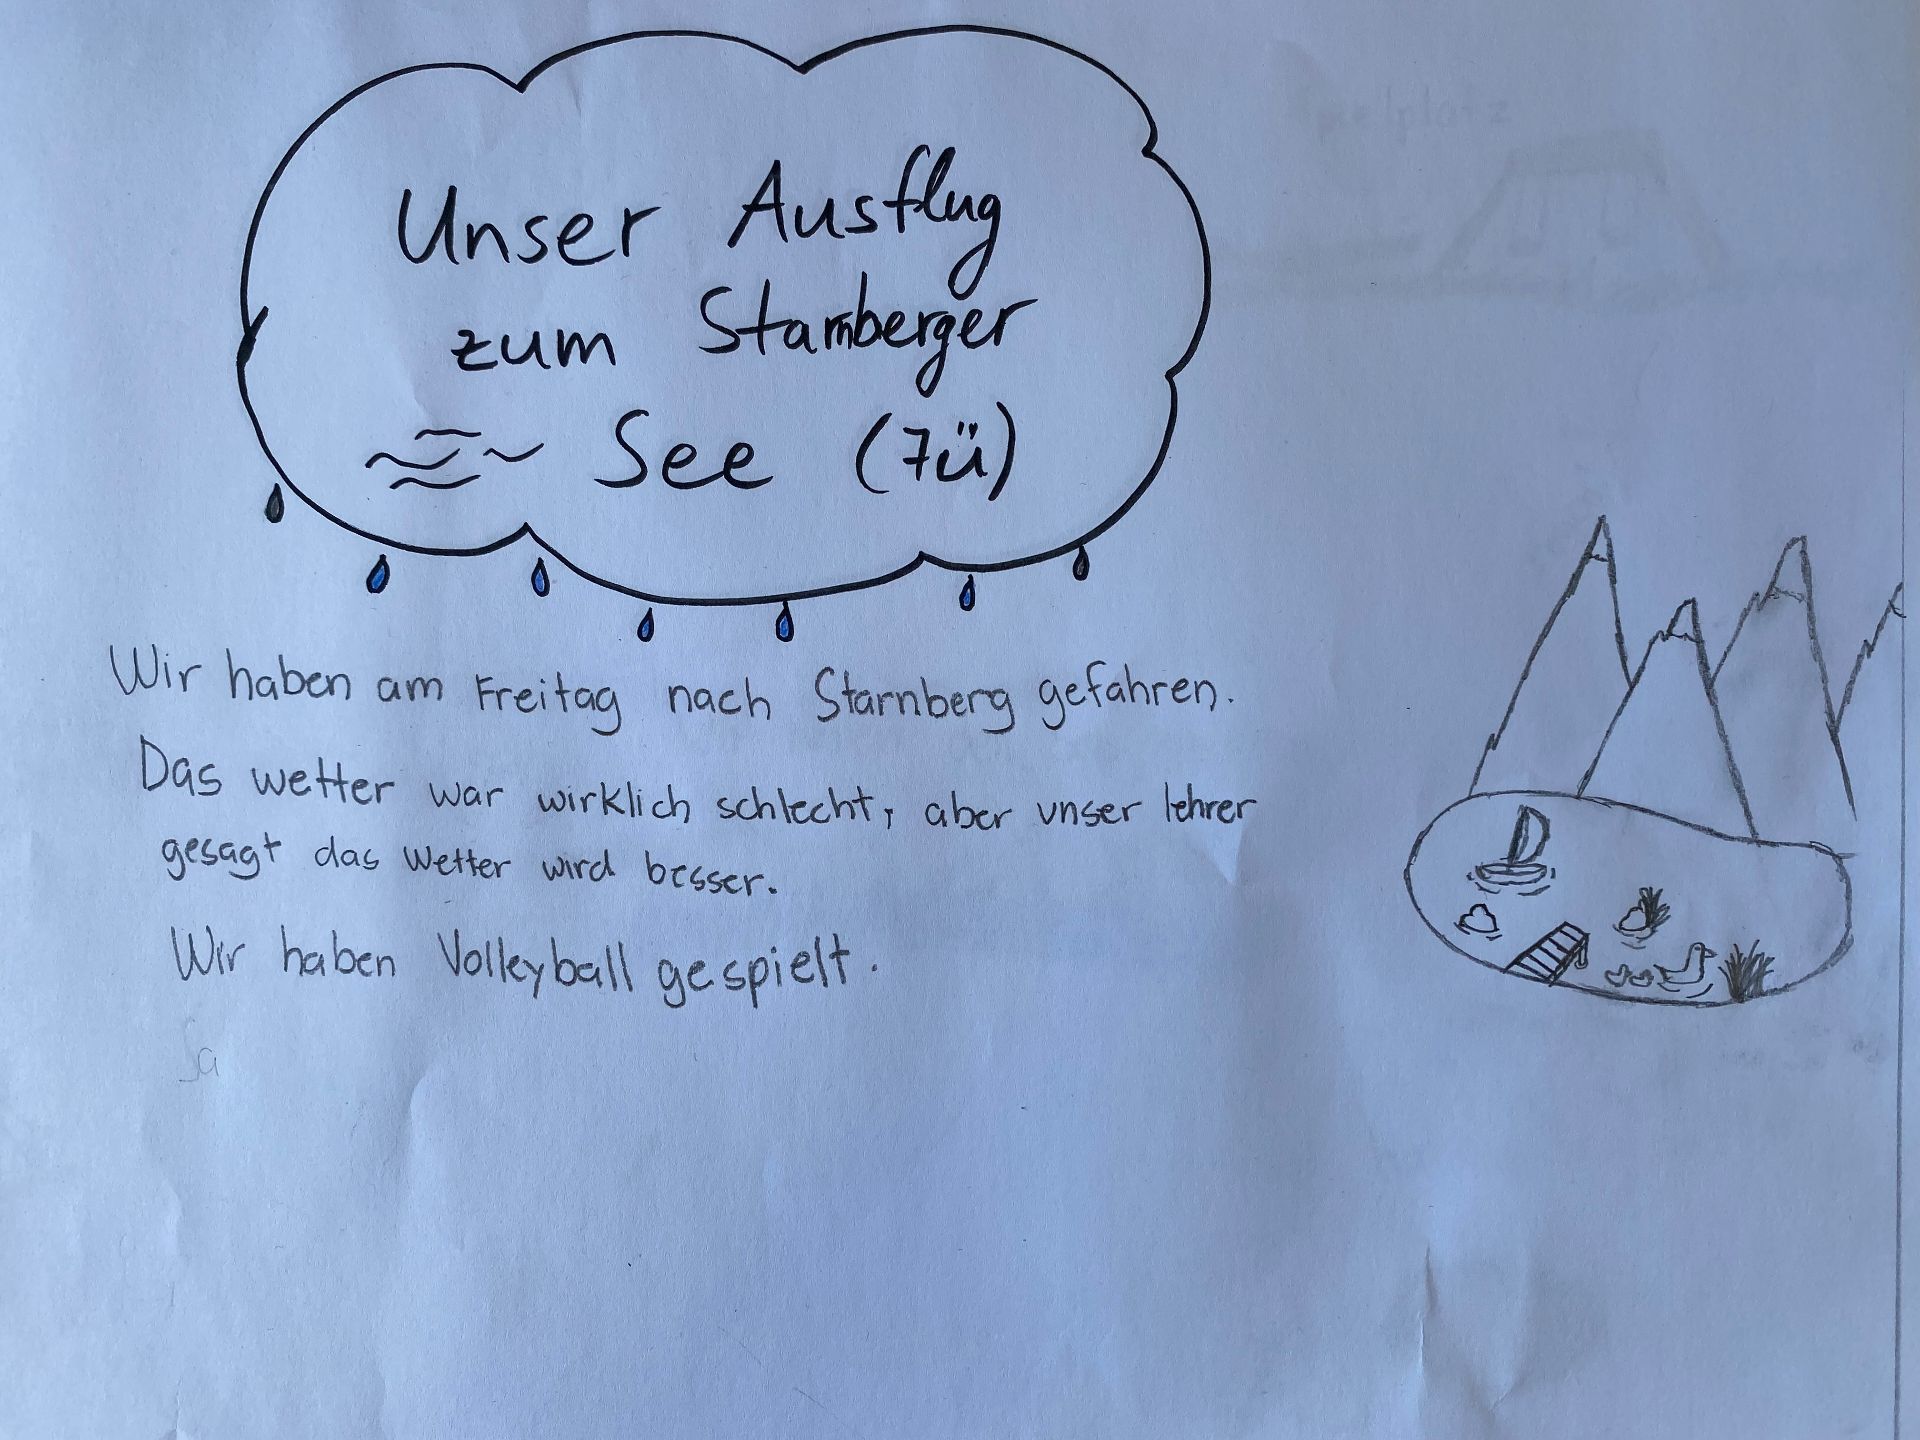 Unser Ausflug
zum Starnberger
See (7ü)
Wir haben am Freitag nach Starnberg gefahren.
Das wetter war wirklich schlecht, aber unser lehrer
gesagt das Wetter wird besser.
Wir haben Volleyball gespielt.
Sa